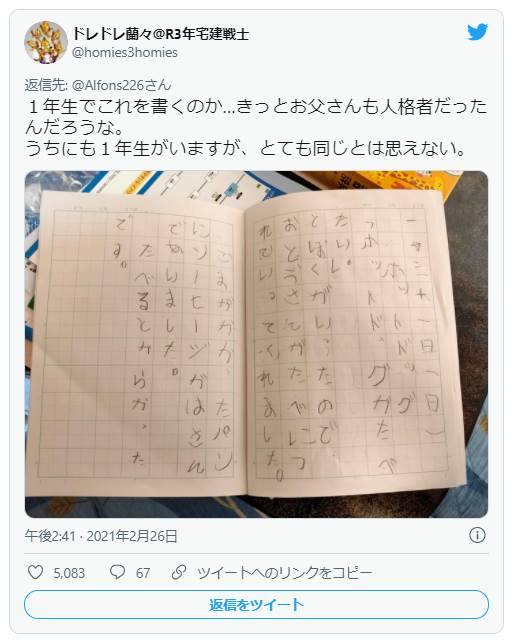 ドレドレ蘭々@R3年宅建戦士
@homies3homies
返信先: @Alfons226さん
１年生でこれを書くのか...きっとお父さんも人格者だった
んだろうな。
うちにも１年生がいますが、とても同じとは思えない。
三十一日(日)
ホットドッグ
ホットドッグがたべ
たい。
とぼくがいったので
おとうさんがたべにつ
れていってくれました。
ごまがかかったパン
にソーセージがはさん
でありました。
たべると
です。
午後2:41 · 2021年2月26日
5,083
67
ツイートへのリンクをコピー
返信をツイート